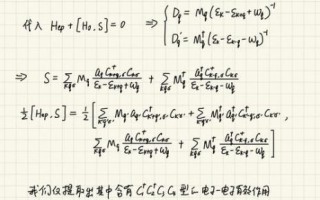 代入 Hep + [H₀, S] = 0 ⇒ { D_q = M_q (ε_k - ε_{k+q} + ω_q)^{-1}
D'_q = M_q^† (ε_k - ε_{k-q} - ω_q)^{-1}
⇒ S = Σ_{kqσ} M_q \frac{a_q C^†_{k+q,σ} C_{kσ}}{ε_k - ε_{k+q} + ω_q} + Σ_{kqσ} M_q^† \frac{a_q^† C^†_{k-q,σ} C_{kσ}}{ε_k - ε_{k-q} - ω_q}
½ [Hep, S] = ½ [ Σ_{kqσ} M_q a_q C^†_{k+q,σ} C_{kσ} + Σ_{kqσ} M_q^† a_q^† C^†_{k-q,σ} C_{kσ} ,
Σ_{kqσ} M_q \frac{a_q C^†_{k+q,σ} C_{kσ}}{ε_k - ε_{k+q} + ω_q} + Σ_{kqσ} M_q^† \frac{a_q^† C^†_{k-q,σ} C_{kσ}}{ε_k - ε_{k-q} - ω_q} ]
我们仅提取出其中含有 C^†C^†C C 型 电子-电子有效作用